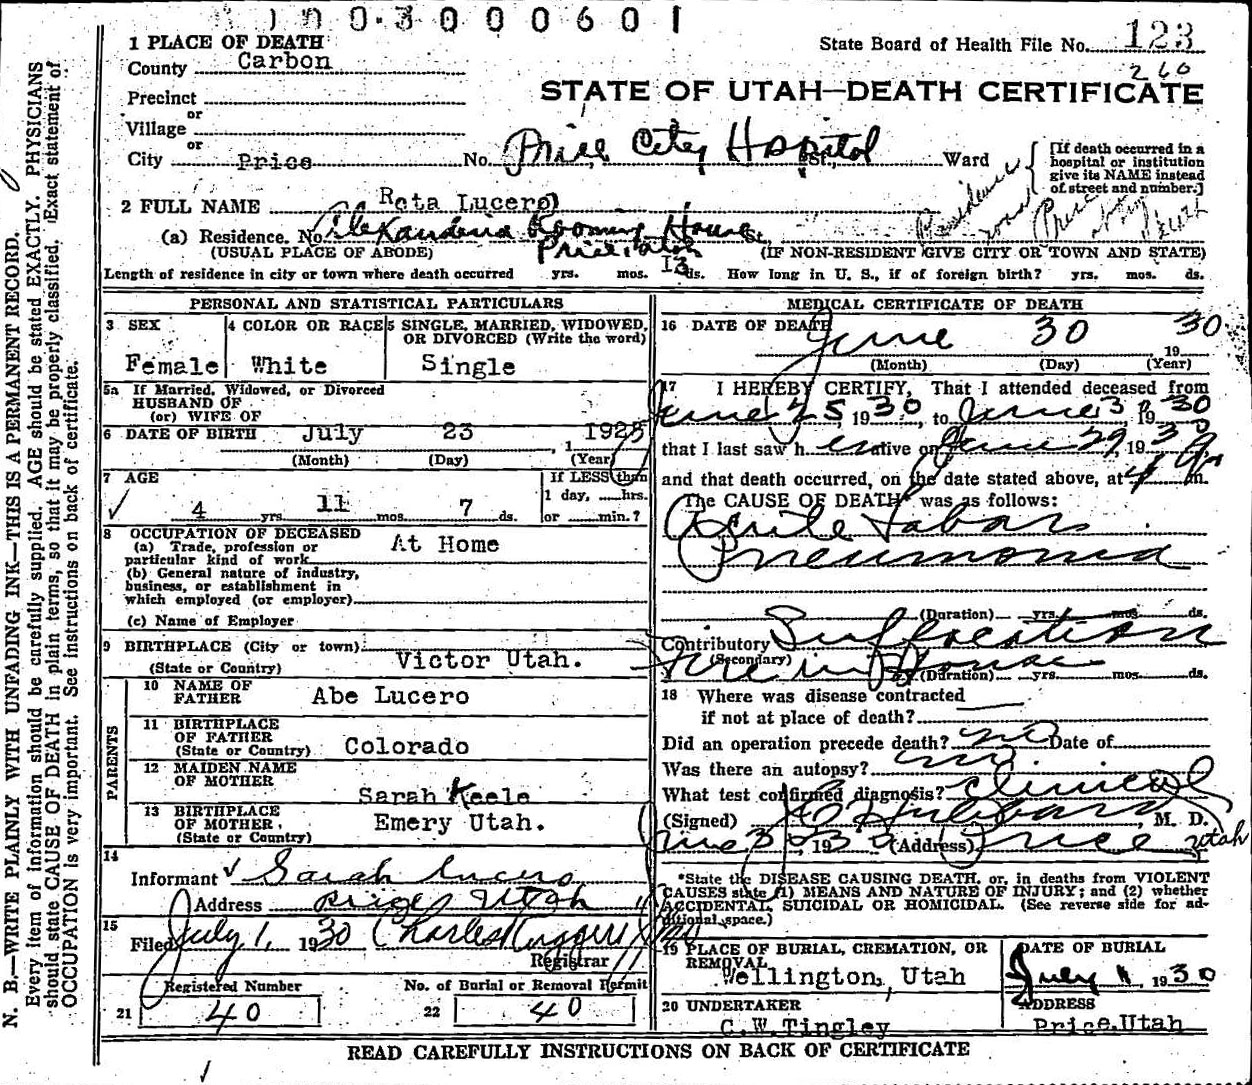 0 3 0 0 0 6 0 1
1 PLACE OF DEATH
State Board of Health File No. 123
County Carbon
260
STATE OF UTAH—DEATH CERTIFICATE
Precinct
or
Village
or
City Price No. Price City Hospital St., Ward
[If death occurred in a hospital or institution give its NAME instead of street and number.]
2 FULL NAME Rota Lucero
(a) Residence. No. Alexandria Rooming House St.
Price, Utah
(USUAL PLACE OF ABODE) (IF NON-RESIDENT GIVE CITY OR TOWN AND STATE)
Length of residence in city or town where death occurred yrs. mos. 13 ds. How long in U. S., if of foreign birth? yrs. mos. ds.
PERSONAL AND STATISTICAL PARTICULARS
3 SEX
Female
4 COLOR OR RACE
White
5 SINGLE, MARRIED, WIDOWED, OR DIVORCED (Write the word)
Single
5a If Married, Widowed, or Divorced
HUSBAND OF
(or) WIFE OF
6 DATE OF BIRTH July 23, 1925
(Month) (Day) (Year)
7 AGE
4 yrs. 11 mos. 7 ds.
If LESS than
1 day, hrs.
or min.?
8 OCCUPATION OF DECEASED
(a) Trade, profession or particular kind of work At Home
(b) General nature of industry, business, or establishment in which employed (or employer)
(c) Name of Employer
9 BIRTHPLACE (City or town)
(State or Country) Victor Utah.
PARENTS
10 NAME OF FATHER Abe Lucero
11 BIRTHPLACE OF FATHER (State or Country) Colorado
12 MAIDEN NAME OF MOTHER Sarah Keele
13 BIRTHPLACE OF MOTHER. (State or Country) Emery Utah.
14
Informant Sarah Lucero
Address Price, Utah
15
Filed July 1, 1930 Charles Ruggeri
Registrar
Registered Number
21 40
No. of Burial or Removal Permit
22 40
MEDICAL CERTIFICATE OF DEATH
16 DATE OF DEATH June 30 1930
(Month) (Day) (Year)
17 I HEREBY CERTIFY, That I attended deceased from
June 25, 1930, to June 30 1930
that I last saw her alive on June 29, 1930
and that death occurred, on the date stated above, at 4 m.
The CAUSE OF DEATH* was as follows:
Acute Lobar
Pneumonia
(Duration) yrs. mos. ds.
Contributory Suffocation
(Secondary) Fire in House
(Duration) yrs. mos. ds.
18 Where was disease contracted
if not at place of death?
Did an operation precede death? no Date of
Was there an autopsy? no
What test confirmed diagnosis? clinical
(Signed) Hubbard, M. D.
June 30, 1930 (Address) Price Utah
*State the DISEASE CAUSING DEATH, or, in deaths from VIOLENT CAUSES state (1) MEANS AND NATURE OF INJURY; and (2) whether ACCIDENTAL, SUICIDAL OR HOMICIDAL. (See reverse side for additional space.)
19 PLACE OF BURIAL, CREMATION, OR REMOVAL
Wellington, Utah
DATE OF BURIAL
July 1, 1930
20 UNDERTAKER
C.W. Tingley
ADDRESS
Price, Utah
READ CAREFULLY INSTRUCTIONS ON BACK OF CERTIFICATE
N. B.—WRITE PLAINLY WITH UNFADING INK—THIS IS A PERMANENT RECORD.
Every item of information should be carefully supplied. AGE should be stated EXACTLY. PHYSICIANS
should state CAUSE OF DEATH in plain terms, so that it may be properly classified. Exact statement of
OCCUPATION is very important. See instructions on back of certificate.